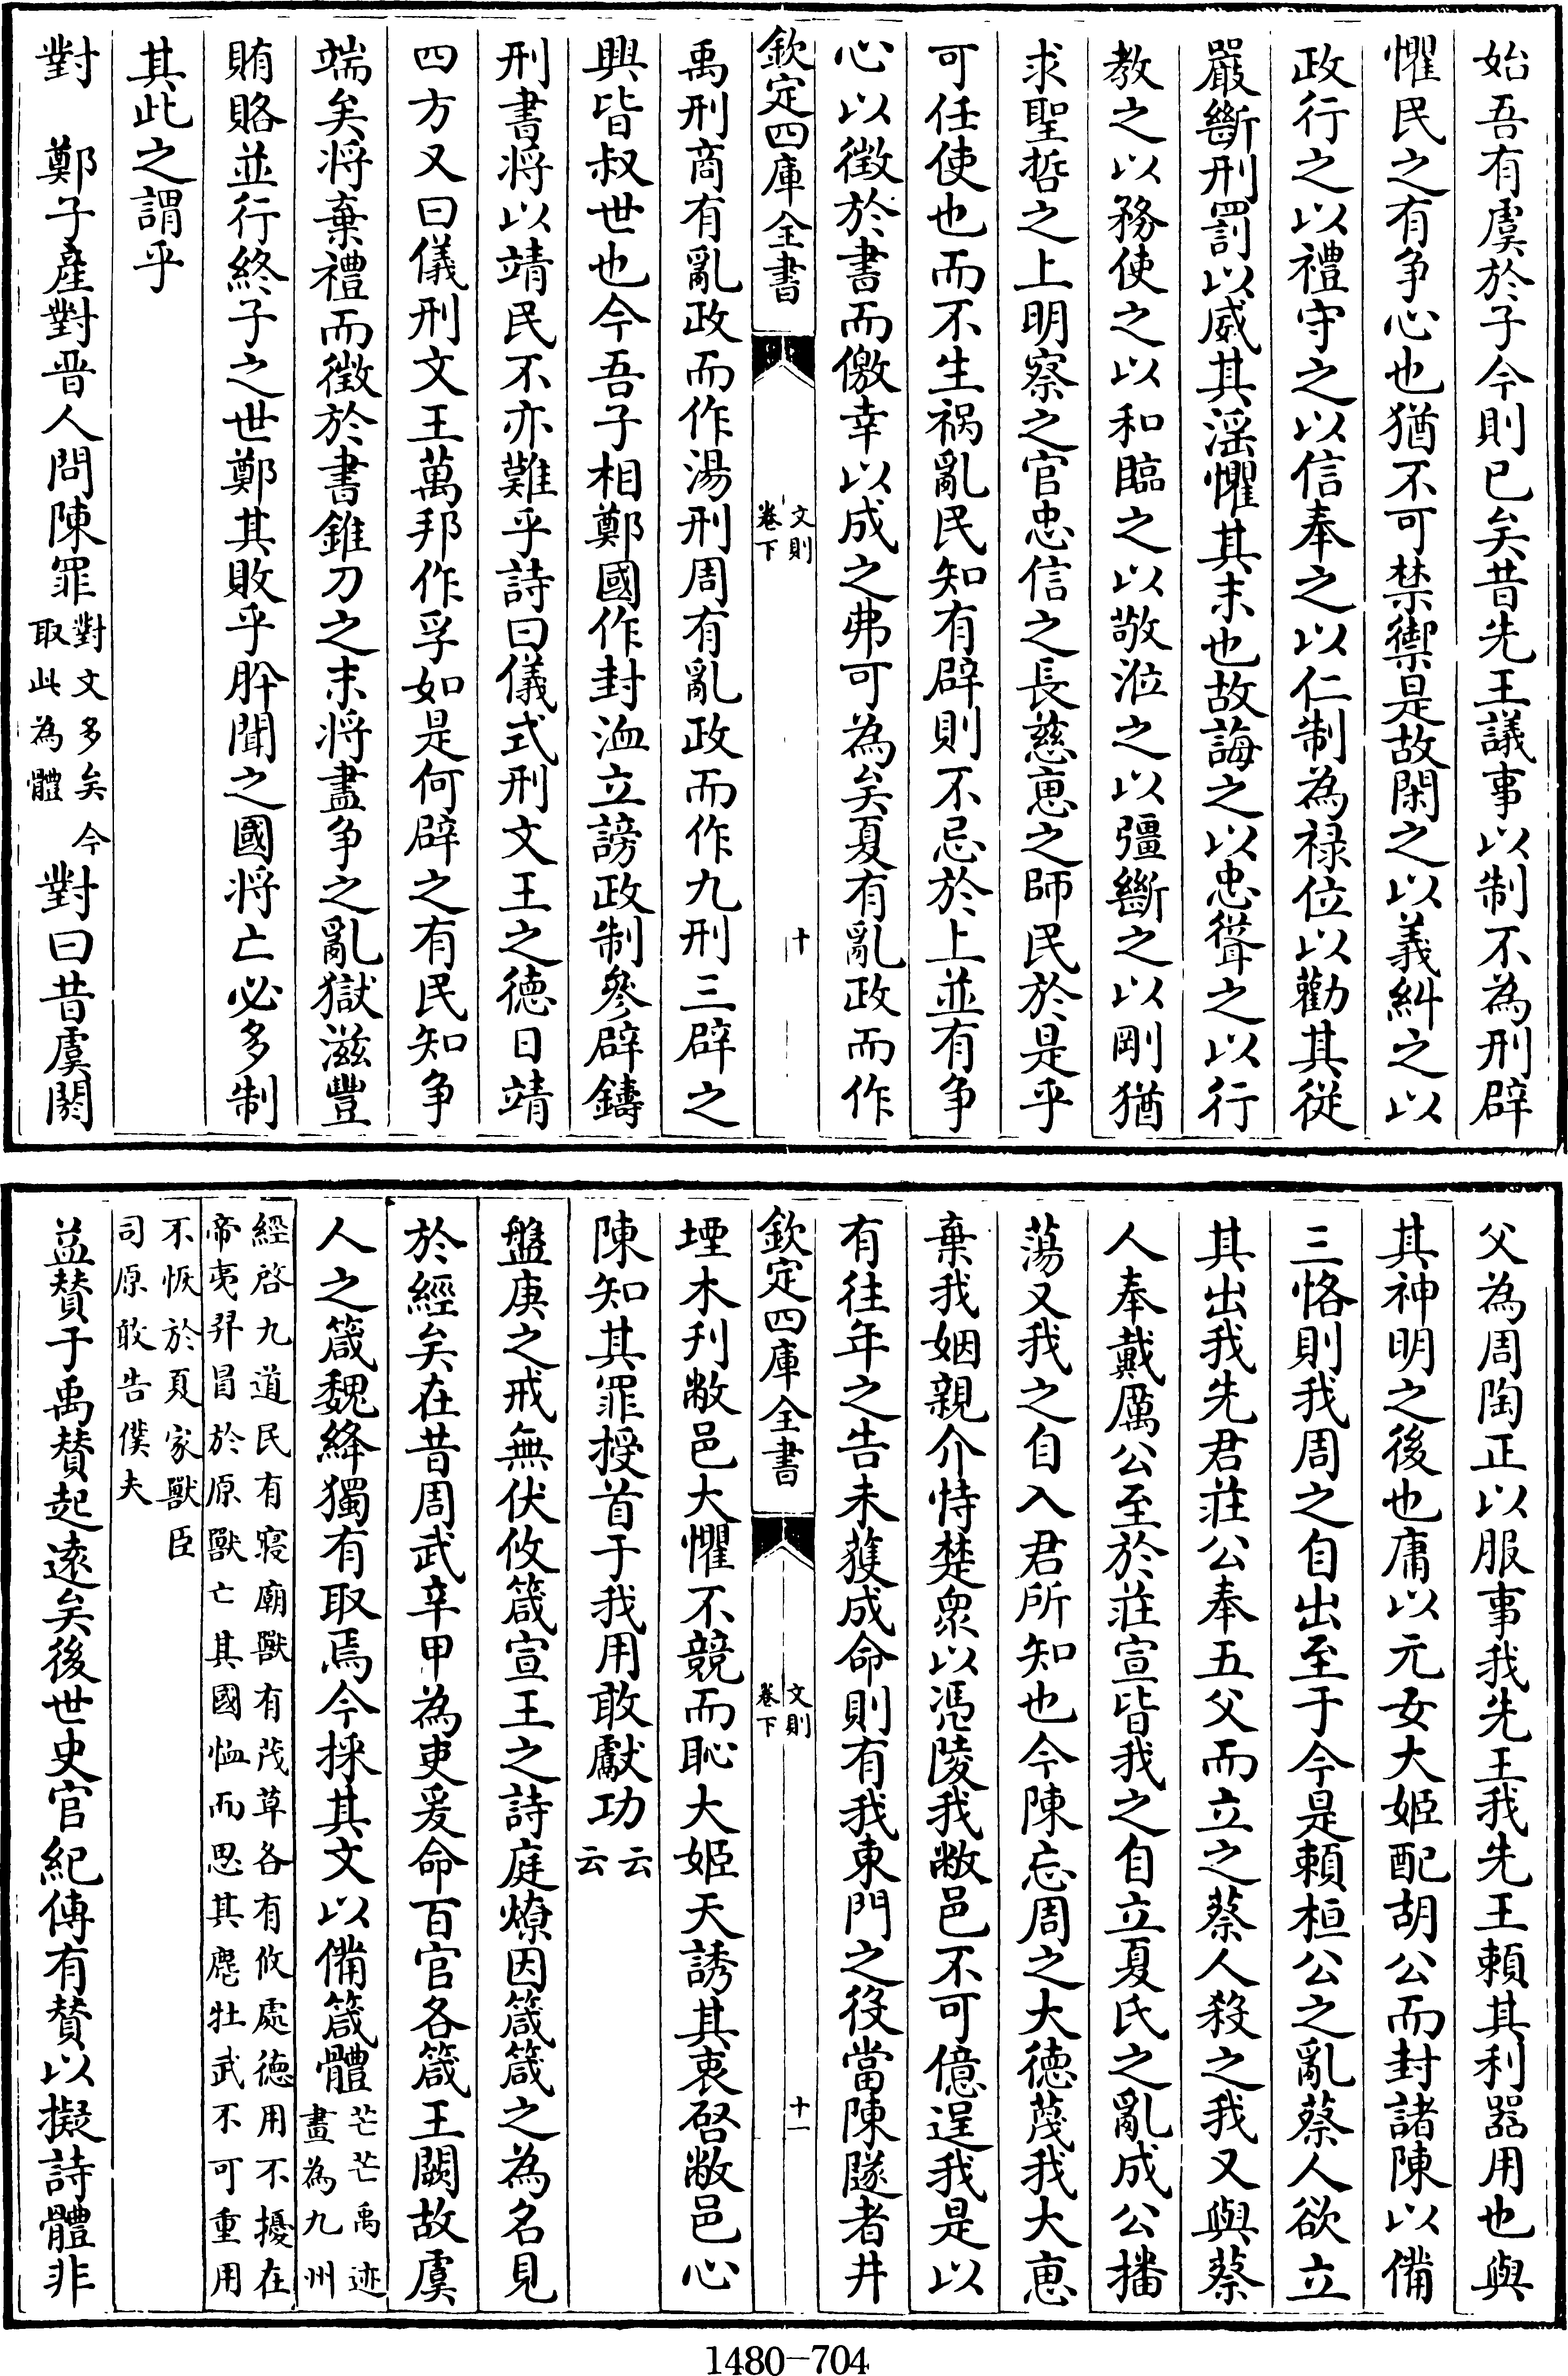 始吾有虞於子今則已矣昔先王議事以制不為刑辟
懼民之有争心也猶不可禁禦是故閑之以義糾之以
政行之以禮守之以信奉之以仁制為禄位以勸其從
嚴斷刑罰以威其淫懼其末也故誨之以忠聳之以行
教之以務使之以和臨之以敬涖之以彊斷之以剛猶
求聖哲之上明察之官忠信之長慈惠之師民於是乎
可任使也而不生禍亂民知有辟則不忌於上並有争
心以徴於書而儌幸以成之弗可為矣夏有亂政而作
欽定四庫全書
文則
卷下
十
禹刑商有亂政而作湯刑周有亂政而作九刑三辟之
興皆叔世也今吾子相鄭國作封洫立謗政制參辟鑄
刑書将以靖民不亦難乎詩曰儀式刑文王之德日靖
四方又曰儀刑文王萬邦作孚如是何辟之有民知争
端矣将棄禮而徴於書錐刀之末将盡争之亂獄滋豐
賄賂並行終子之世鄭其敗乎肸聞之國将亡必多制
其此之謂乎
對　鄭子產對晋人問陳罪對文多矣今取此為體對曰昔虞閼
父為周陶正以服事我先王我先王頼其利器用也與
其神明之後也庸以元女大姬配胡公而封諸陳以備
三恪則我周之自出至于今是頼桓公之亂蔡人欲立
其出我先君莊公奉五父而立之蔡人殺之我又與蔡
人奉戴厲公至於莊宣皆我之自立夏氏之亂成公播
蕩又我之自入君所知也今陳忘周之大德蔑我大惠
棄我姻親介恃楚衆以馮陵我敝邑不可億逞我是以
有往年之告未獲成命則有我東門之役當陳隧者井
欽定四庫全書
文則
卷下
十一
堙木刋敝邑大懼不競而恥大姬天誘其衷啓敝邑心
陳知其罪授首于我用敢獻功云云
盤庚之戒無伏攸箴宣王之詩庭燎因箴箴之為名見
於經矣在昔周武辛甲為吏爰命百官各箴王闕故虞
人之箴魏絳獨有取焉今採其文以備箴體芒芒禹迹畫為九州
經啓九道民有寝廟獸有茂草各有攸處德用不擾在
帝夷羿冒於原獸亡其國恤而思其麀牡武不可重用
不恢於夏家獸臣
司原敢告僕夫
益賛于禹賛起逺矣後世史官紀傳有賛以擬詩體非
1480-704